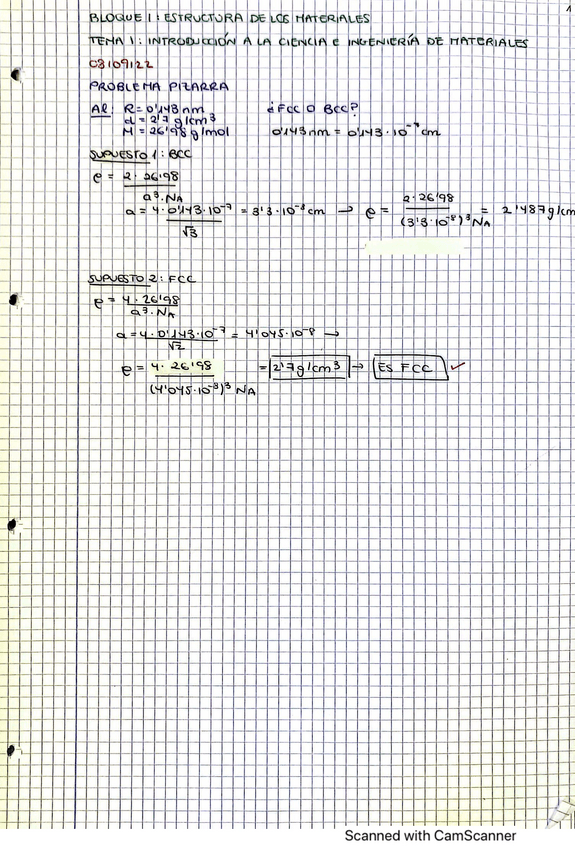 1
BLOQUE 1: ESTRUCTURA DE LOS MATERIALES
TEMA 1: INTRODUCCIÓN A LA CIENCIA E INGENIERÍA DE MATERIALES
08/09/22
PROBLEMA PIZARRA
Al: R = 0'143 nm ¿FCC O BCC?
d = 2'7 g/cm³
M = 26'98 g/mol 0'143 nm = 0'143·10⁻⁷ cm
SUPUESTO 1: BCC
ρ = 2·26'98 / a³·NA
a = 4·0'143·10⁻⁷ / √3 = 3'3·10⁻⁸ cm → ρ = 2·26'98 / (3'3·10⁻⁸)³ NA = 2'487 g/cm
SUPUESTO 2: FCC
ρ = 4·26'98 / a³·NA
a = 4·0'143·10⁻⁷ / √2 = 4'045·10⁻⁸ →
ρ = 4·26'98 / (4'045·10⁻⁸)³ NA = 2'7 g/cm³ → ES FCC ✓
Scanned with CamScanner